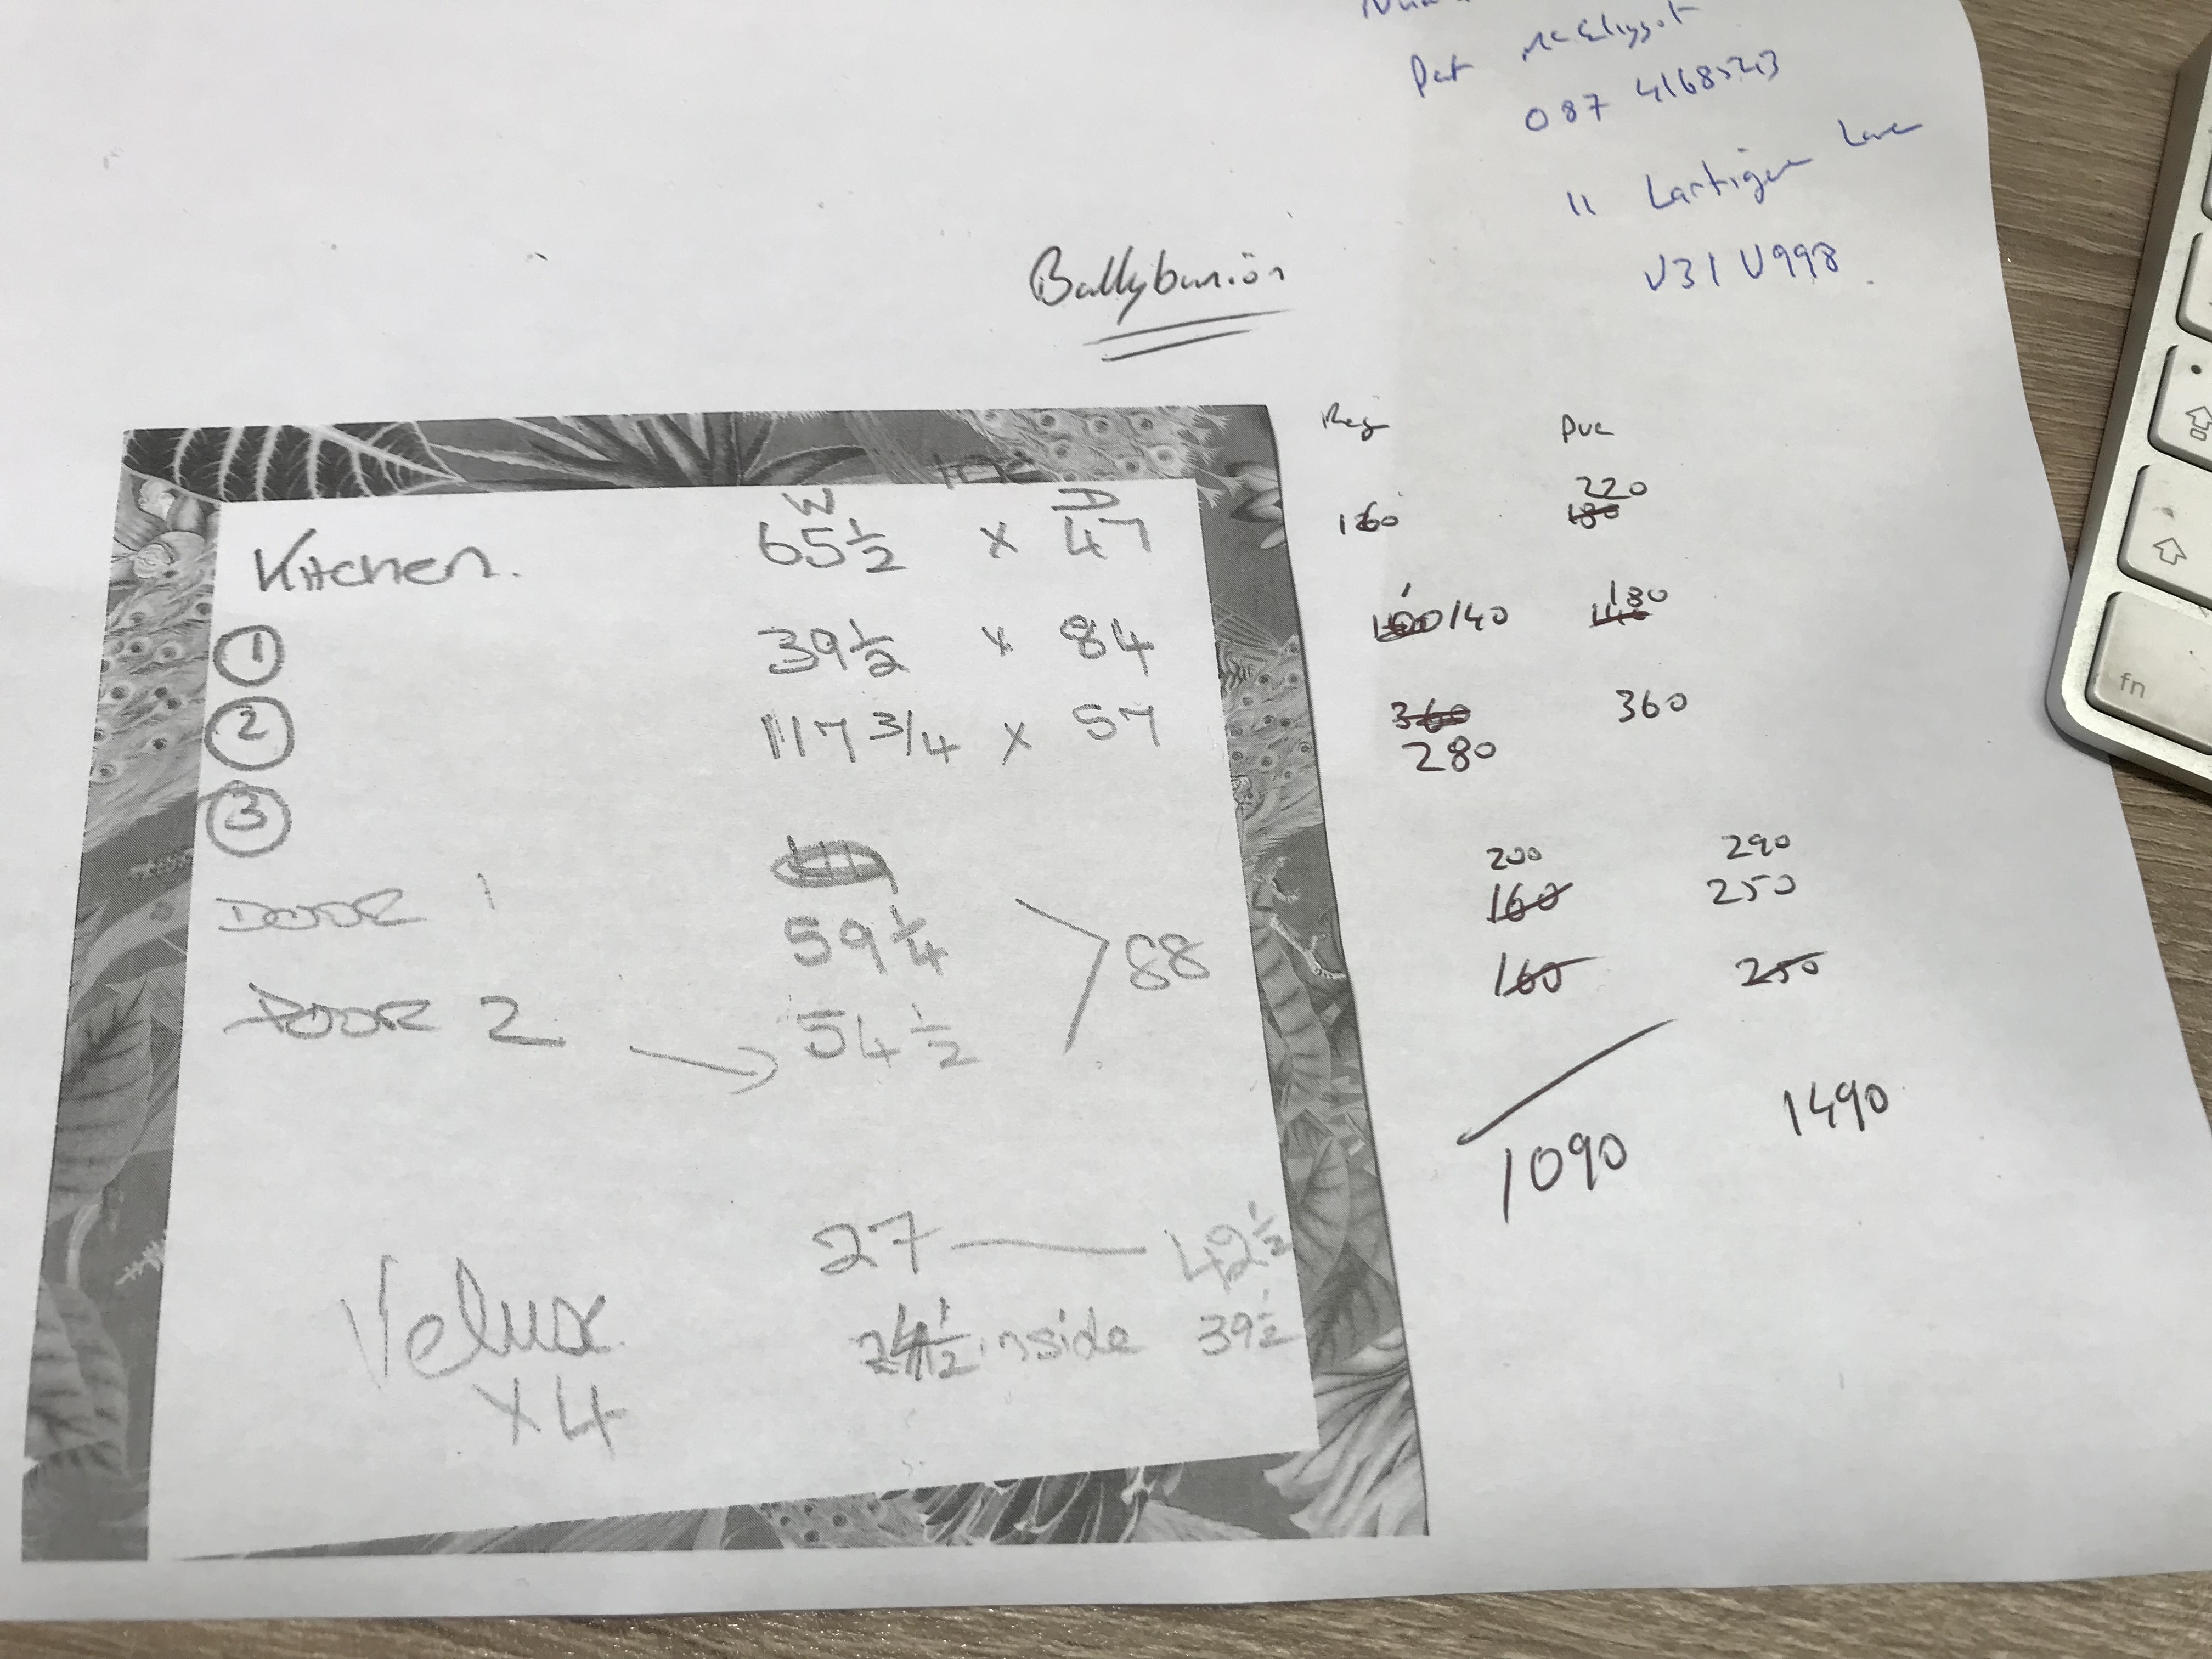 Pat McElligott
087 4168523
11 Lartigue Lane
V31 V998
Ballybunion
Reg PVC
W D
Kitchen. 65 1/2 x 47
160 220
180
① 39 1/2 x 84
140 180
② 117 3/4 x 57
360 360
280
③
DOOR 1 59 1/4
88
DOOR 2 → 54 1/2
200 290
160 250
160 250
1090 1490
27 — 42 1/2
Velux
x4
24 1/2 inside 39 1/2
fn